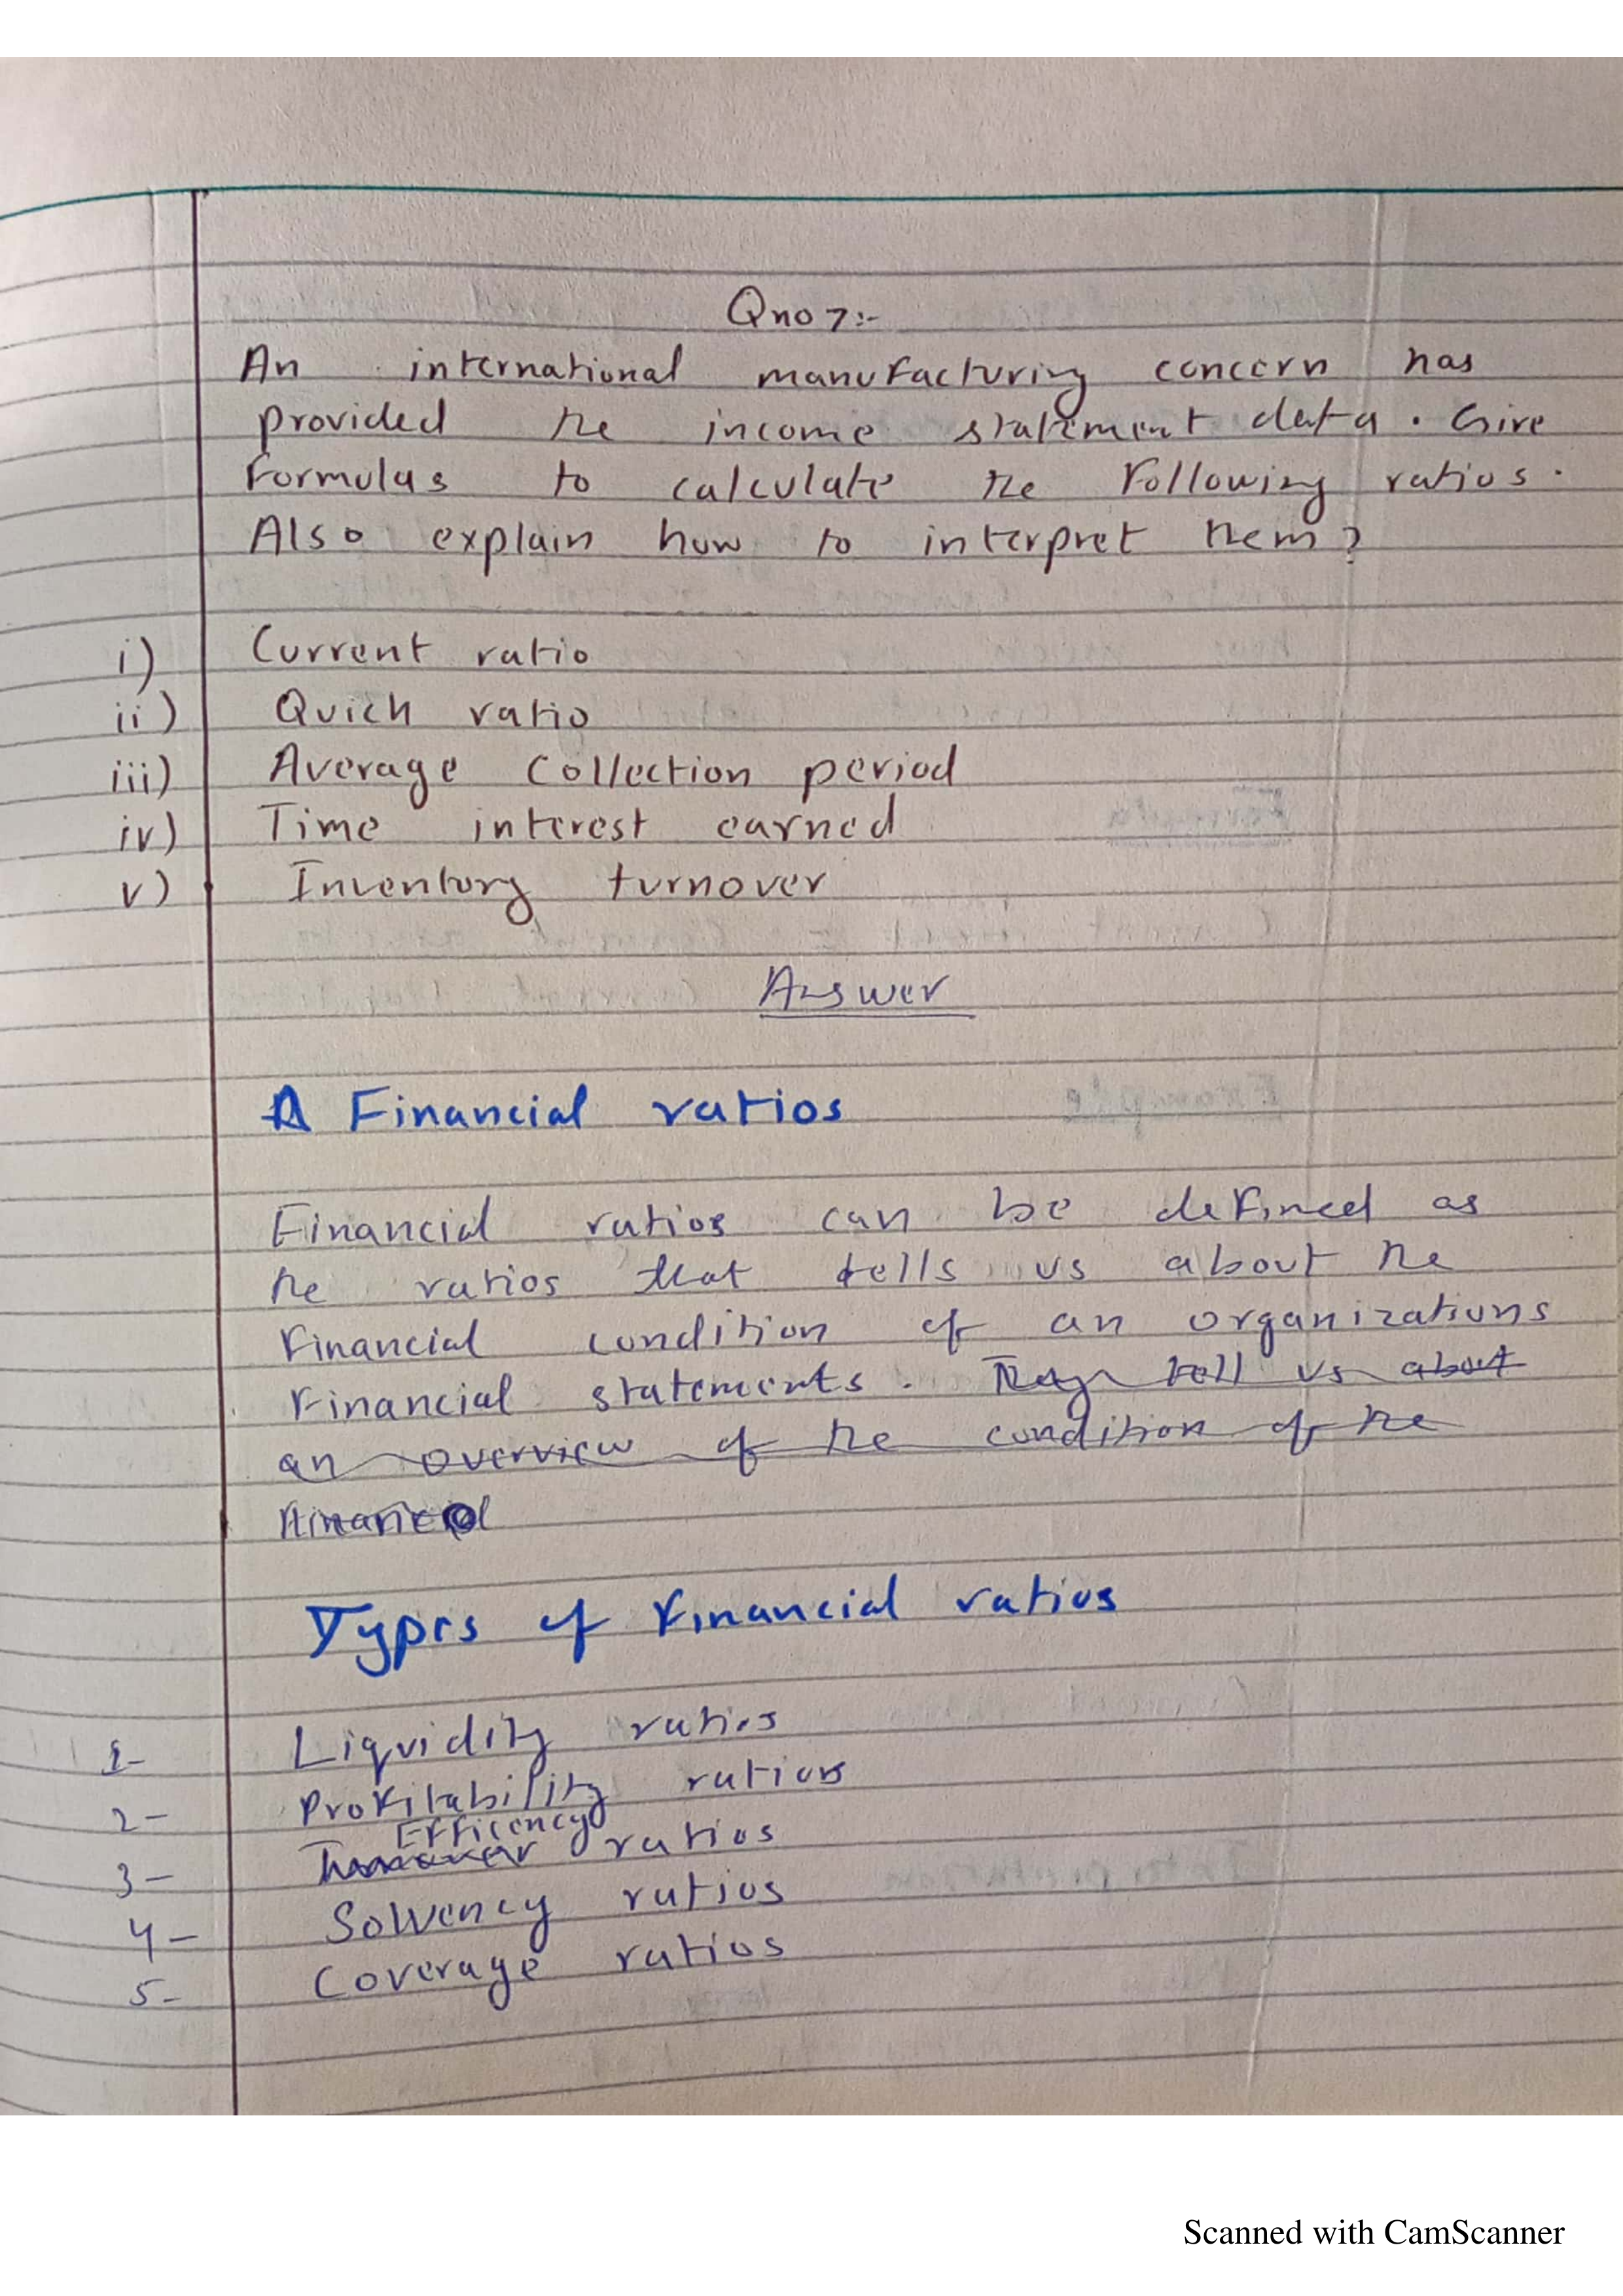 Qno 7:-
An international manufacturing concern has
provided the income statement data. Give
formulas to calculate the following ratios.
Also explain how to interpret them?
i) Current ratio
ii) Quick ratio
iii) Average Collection period
iv) Time interest earned
v) Inventory turnover
Answer
Financial ratios
Financial ratios can be defined as
the ratios that tells us about the
financial condition of an organizations
financial statements. They tell us about
an overview of the condition of the
financial
Types of financial ratios
1- Liquidity ratios
2- Profitability ratios
3- Efficency ratios
4- Solvency ratios
5- Coverage ratios
Scanned with CamScanner